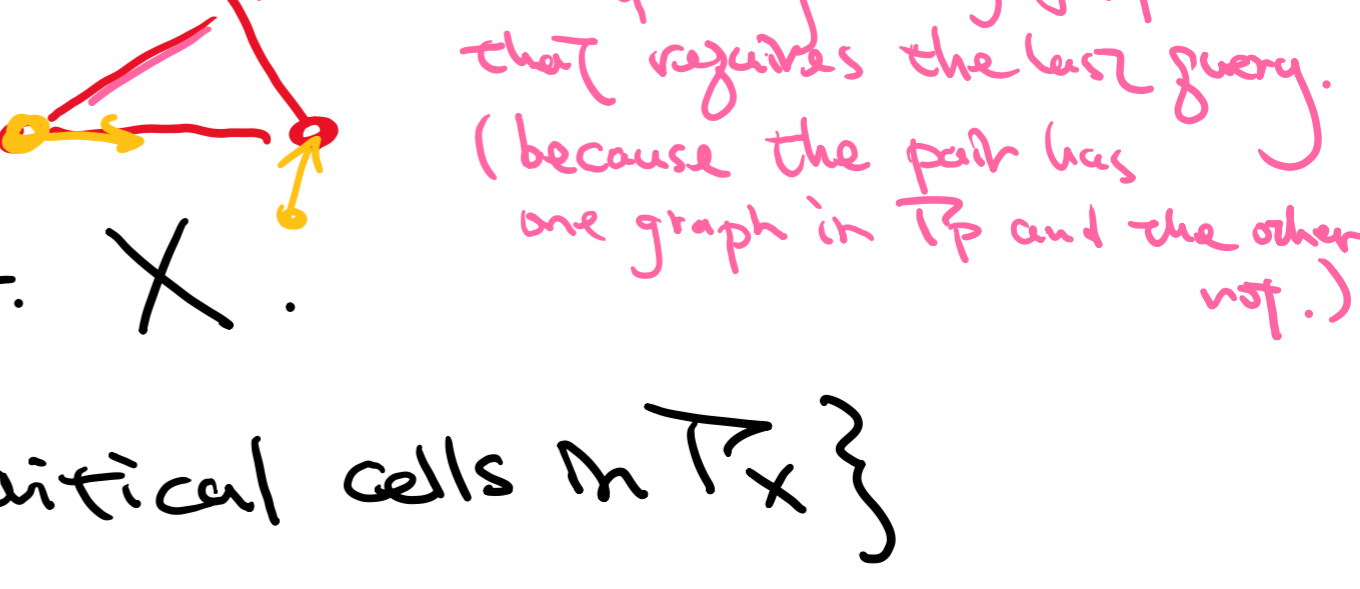 that requires the last query.
(because the pair has
one graph in Γp and the other
not.)
X.
critical cells in Γx}